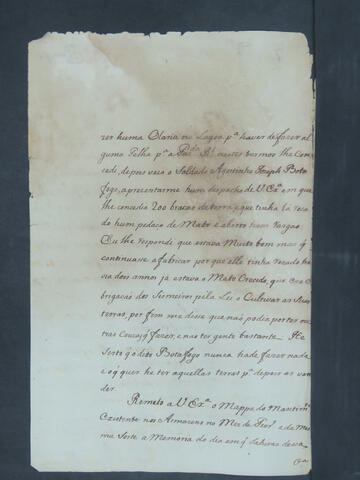 zer huma Olaria na Lagoa pª haver de fazer al
guma Telha pª a Faz.da Rl nestes termos lhe Con
cedi, depois veio o Soldado Agostinho Joseph Boto
fogo, aprezentarme hum despacho de V. Exª em que
lhe concedia 200 braças de terra, e que tinha la roca
do hum pedaço de Mato e aberto huns vargas
Eu lhe respondi que estava Muito bem mas q
continuase a fabricar por que elle tinha rozado ha
via dois annos já estava o Mato Crecido, que era o
brigação dos Sismeiros pela Lei o Cultivar as Suas
terras, por fim me disse que não podia por ter ou
tras Couzas q fazer, e nao ter gente bastante. He
Serto q o dito Botafogo nunca hade fazer nada
e o q quer he ter aquellas terras pª depois as ven
der.
Remeto a V. Exª o Mappa do Mantim.to
Existente nos Armazens no Mez de Fevr.o e da Mes
ma Sorte a Memoria do dia em q Sahirao desta